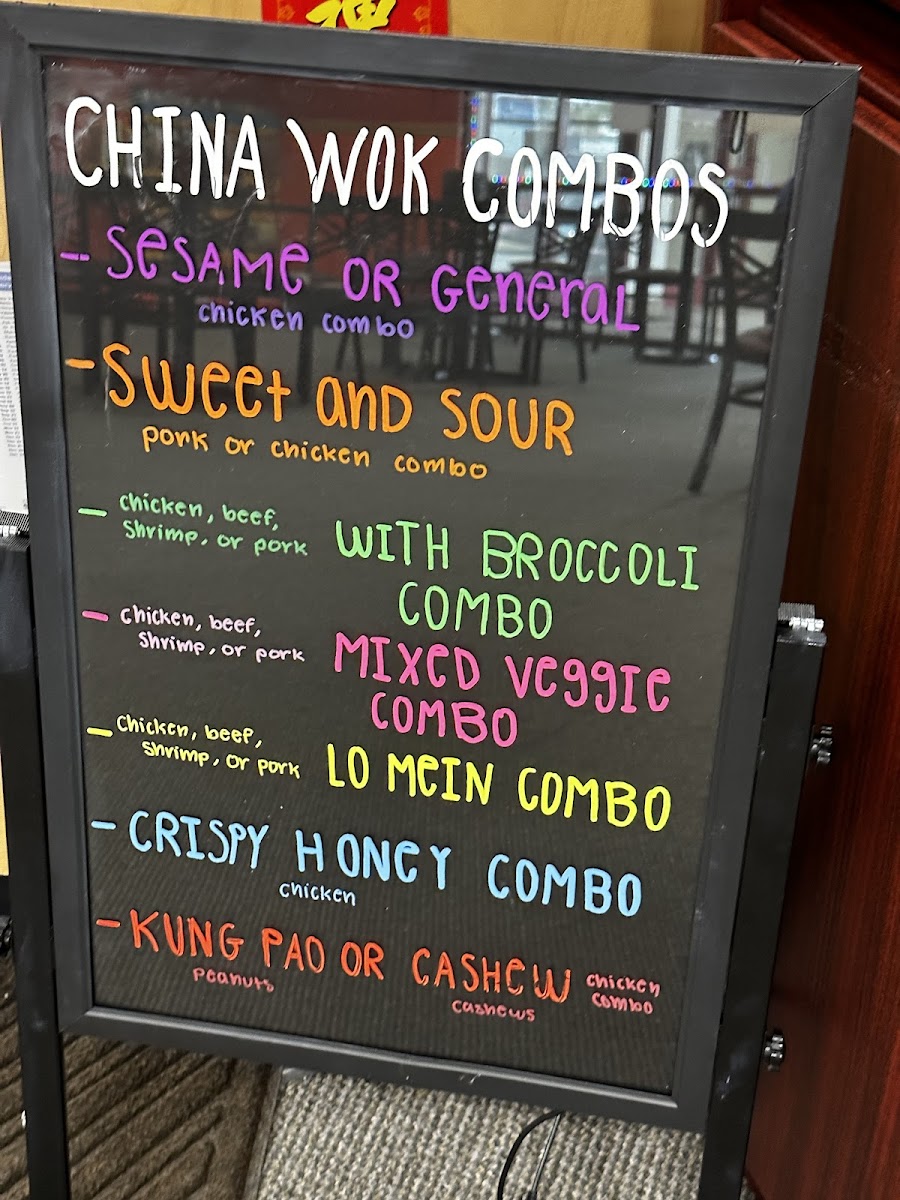 CHINA WOK COMBOS
- SESAME OR GENERAL
chicken combo
- SWEET AND SOUR
pork or chicken combo
- chicken, beef,
shrimp, or pork
WITH BROCCOLI
COMBO
- chicken, beef,
shrimp, or pork
MIXED VEGGIE
COMBO
- chicken, beef,
shrimp, or pork
LO MEIN COMBO
- CRISPY HONEY COMBO
chicken
- KUNG PAO OR CASHEW
peanuts
cashews
chicken
combo